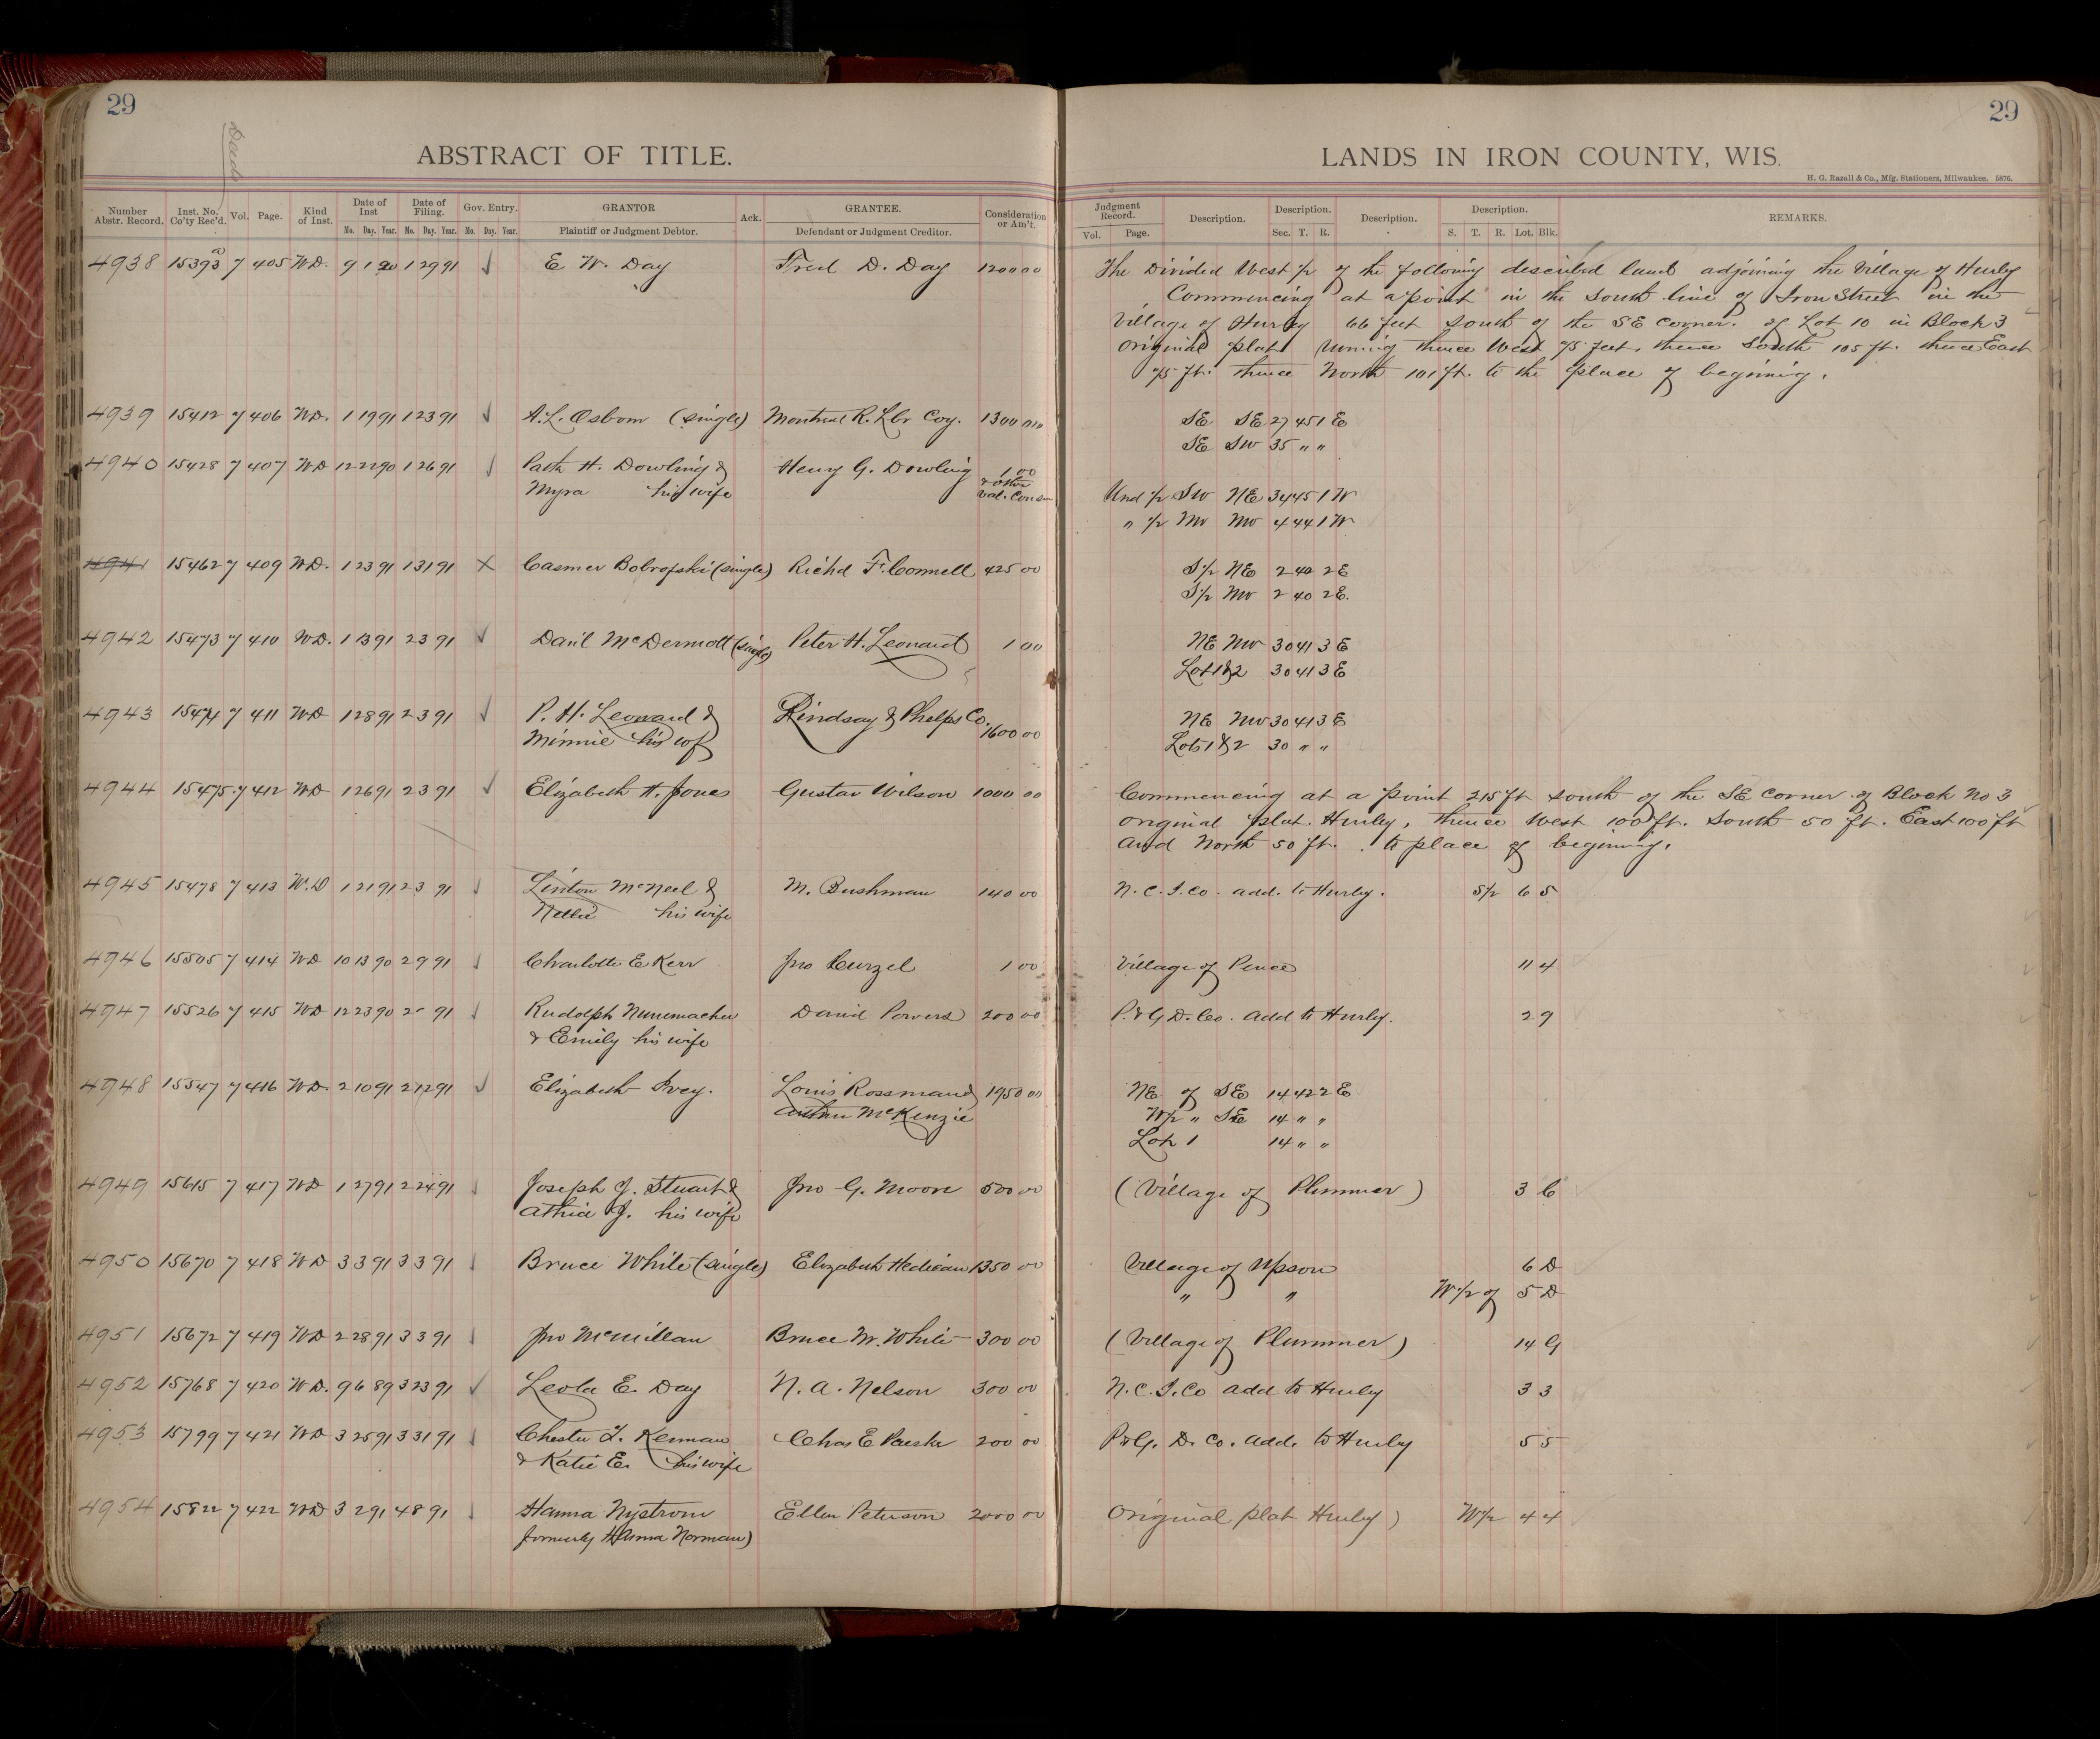 29
Deeds
ABSTRACT OF TITLE.
Number Abstr. Record. Inst. No. Co'ty Rec'd. Vol. Page. Kind of Inst. Date of Inst Mo. Day. Year. Date of Filing. Mo. Day. Year. Gov. Entry. Mo. Day. Year. GRANTOR Plaintiff or Judgment Debtor. Ack. GRANTEE. Defendant or Judgment Creditor. Consideration or Am't.
29
LANDS IN IRON COUNTY, WIS.
H. G. Razall & Co., Mfg. Stationers, Milwaukee. 5876.
Judgment Record. Vol. Page. Description. Description. Sec. T. R. Description. Description. S. T. R. Lot. Blk. REMARKS.
4938 15393a 7 405 WD. 9 1 90 1 29 91 ✓ E W. Day Fred D. Day 1200 00 The Divided West 1/2 of the following described land adjoining the Village of Hurley
Commencing at a point in the South line of Iron Street in the
Village of Hurley 66 feet South of the SE corner. of Lot 10 in Block 3
original plat running thence West 75 feet. thence South 105 ft. thence East
75 ft. thence North 101 ft. to the place of begining.
4939 15412 7 406 WD. 1 19 91 1 23 91 ✓ A. L. Osborn (single) Montreal R. Lbr Coy. 1300 00 SE SE 27 45 1 E
SE SW 35 " "
4940 15428 7 407 WD 12 22 90 1 26 91 ✓ Patk H. Dowling & Henry G. Dowling 1 00
Myra his wife & other val. Con Und 1/2 SW NE 34 45 1 W
" 1/2 NW NW 4 44 1 W
4941 15462 7 409 WD. 1 23 91 1 31 91 X Casmer Bobrofski (single) Richd F. Connell 425 00 S1/2 NE 2 40 2 E
S1/2 NW 2 40 2 E.
4942 15473 7 410 WD. 1 13 91 2 3 91 ✓ Danl McDermott (single) Peter H. Leonard 1 00 NE NW 30 41 3 E
Lot 1&2 30 41 3 E
4943 15474 7 411 WD 1 28 91 2 3 91 ✓ P. H. Leonard & Lindsay & Phelps Co. 1600 00 NE NW 30 41 3 E
Minnie his wf Lots 1&2 30 " "
4944 15475 7 412 WD 1 26 91 2 3 91 ✓ Elizabeth H. Jones Gustav Wilson 1000 00 Commencing at a point 215 ft south of the SE corner of Block No 3
original plat. Hurley, thence West 100 ft. South 50 ft. East 100 ft
and North 50 ft. to place of begining.
4945 15478 7 413 W.D 1 21 91 2 3 91 ✓ Linton McNeel & M. Bushman 140 00 N. C. I. Co. add. to Hurley. S1/2 6 5
Nellie his wife
4946 15505 7 414 WD 10 13 90 2 9 91 ✓ Charlotte E Kerr Jno Curzel 1 00 Village of Pence 11 4
4947 15526 7 415 WD 12 23 90 2 - 91 ✓ Rudolph Nunemacher David Powers 200 00 P. & G D. Co. add to Hurley. 2 9
& Emily his wife
4948 15547 7 416 WD. 2 10 91 2 12 91 ✓ Elizabeth Ivey. Louis Rossman & 1950 00 NE of SE 14 42 2 E
Arthur McKenzie W1/2 " SE 14 " "
Lot 1 14 " "
4949 15615 7 417 WD 1 27 91 2 24 91 ✓ Joseph J. Stuart & Jno G. Moore 500 00 (Village of Plummer) 3 C
his wife
4950 15670 7 418 WD 3 3 91 3 3 91 ✓ Bruce White (single) Elizabeth Hedican 1350 00 Village of Upson 6 D
" " W1/2 of 5 D
4951 15672 7 419 WD 2 28 91 3 3 91 ✓ Jno McMillan Bruce W. White 300 00 (Village of Plummer) 14 G
4952 15768 7 420 WD. 9 6 89 3 23 91 ✓ Leola E. Day N. A. Nelson 300 00 N. C. I. Co add to Hurley 3 3
4953 15799 7 421 WD 3 25 91 3 31 91 ✓ Chester L. Chas E 200 00 P & G. D. Co. add. to Hurley 5 5
& Katie E. his wife
4954 15822 7 422 WD 3 2 91 4 8 91 ✓ Hanna Nystrom Ellen Peterson 2000 00 Original plat Hurley) W1/2 4 4
formerly Hanna Norman)